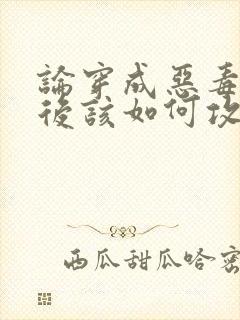 論穿成惡毒
後該如何攻
西瓜甜瓜哈密